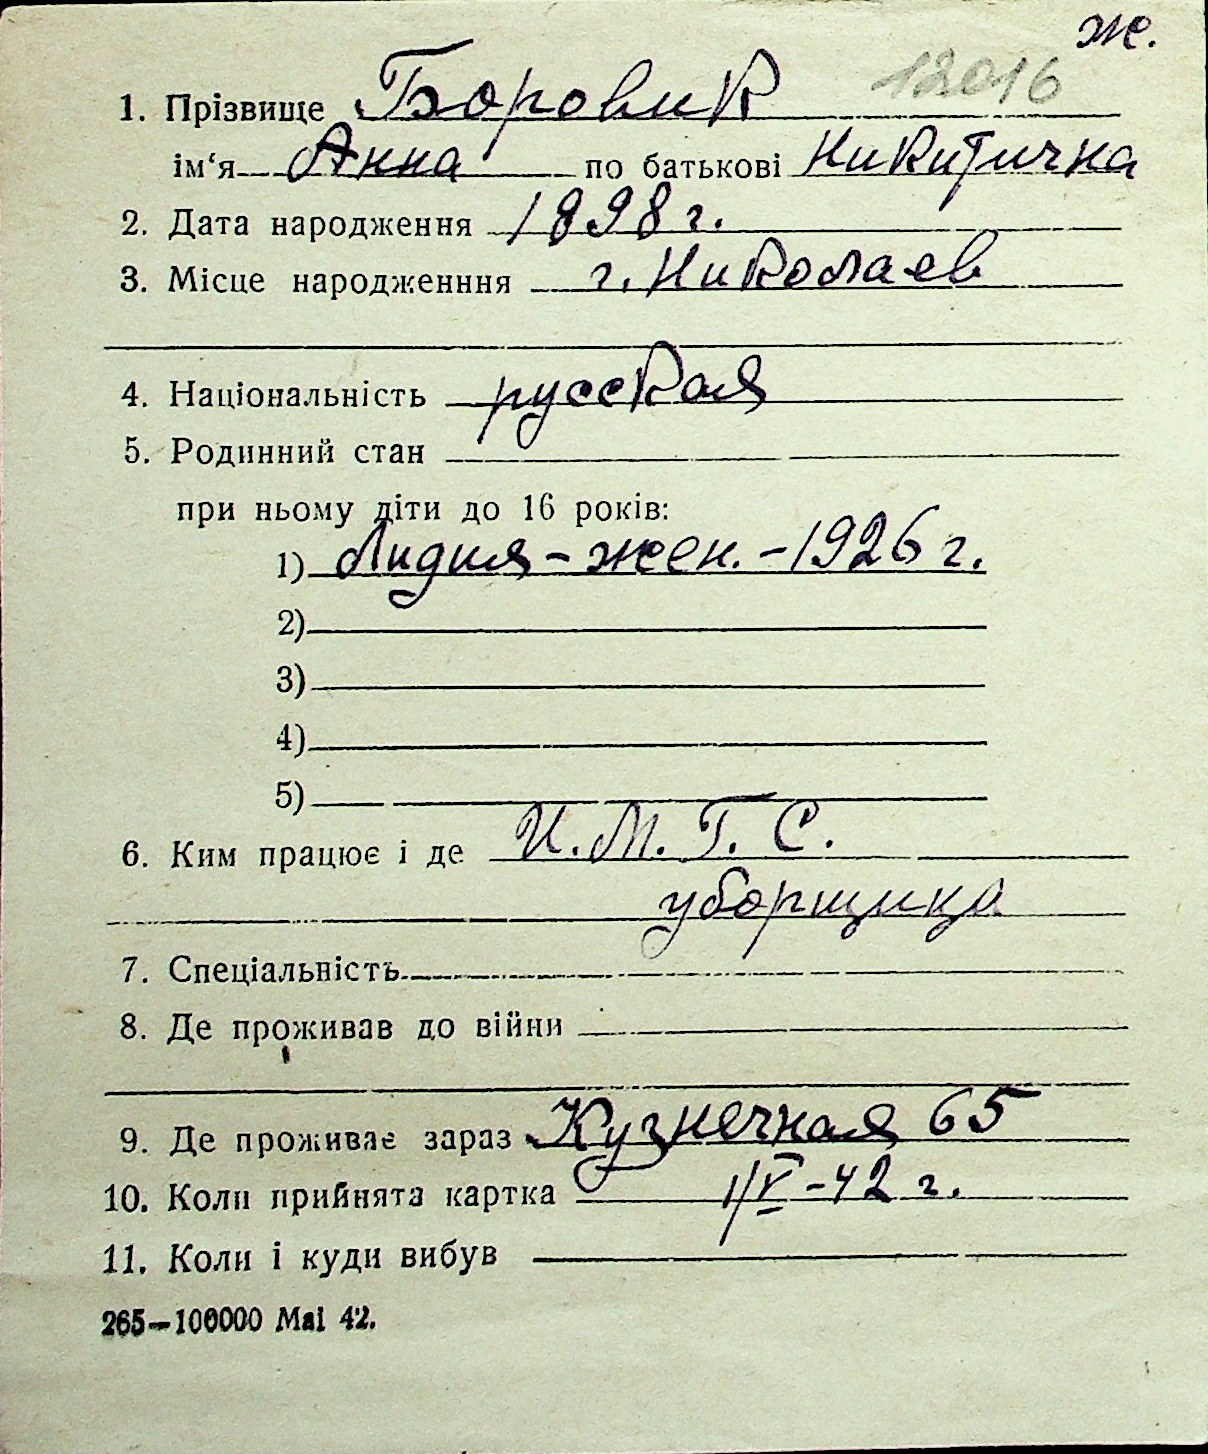 ж.
12016
1. Прізвище Боровик
ім‘я Анна по батькові Никитична
2. Дата народження 1898 г.
3. Місце народженння г. Николаев
4. Національність русская
5. Родинний стан
при ньому діти до 16 років:
1) Лидия – жен. – 1926 г.
2)
3)
4)
5)
6. Ким працює і де И. М. Т. С.
уборщица
7. Спеціальність
8. Де проживав до війни
9. Де проживає зараз Кузнечная 65
10. Коли прийнята картка 1/V – 42 г.
11. Коли і куди вибув
265—100000 Mai 42.